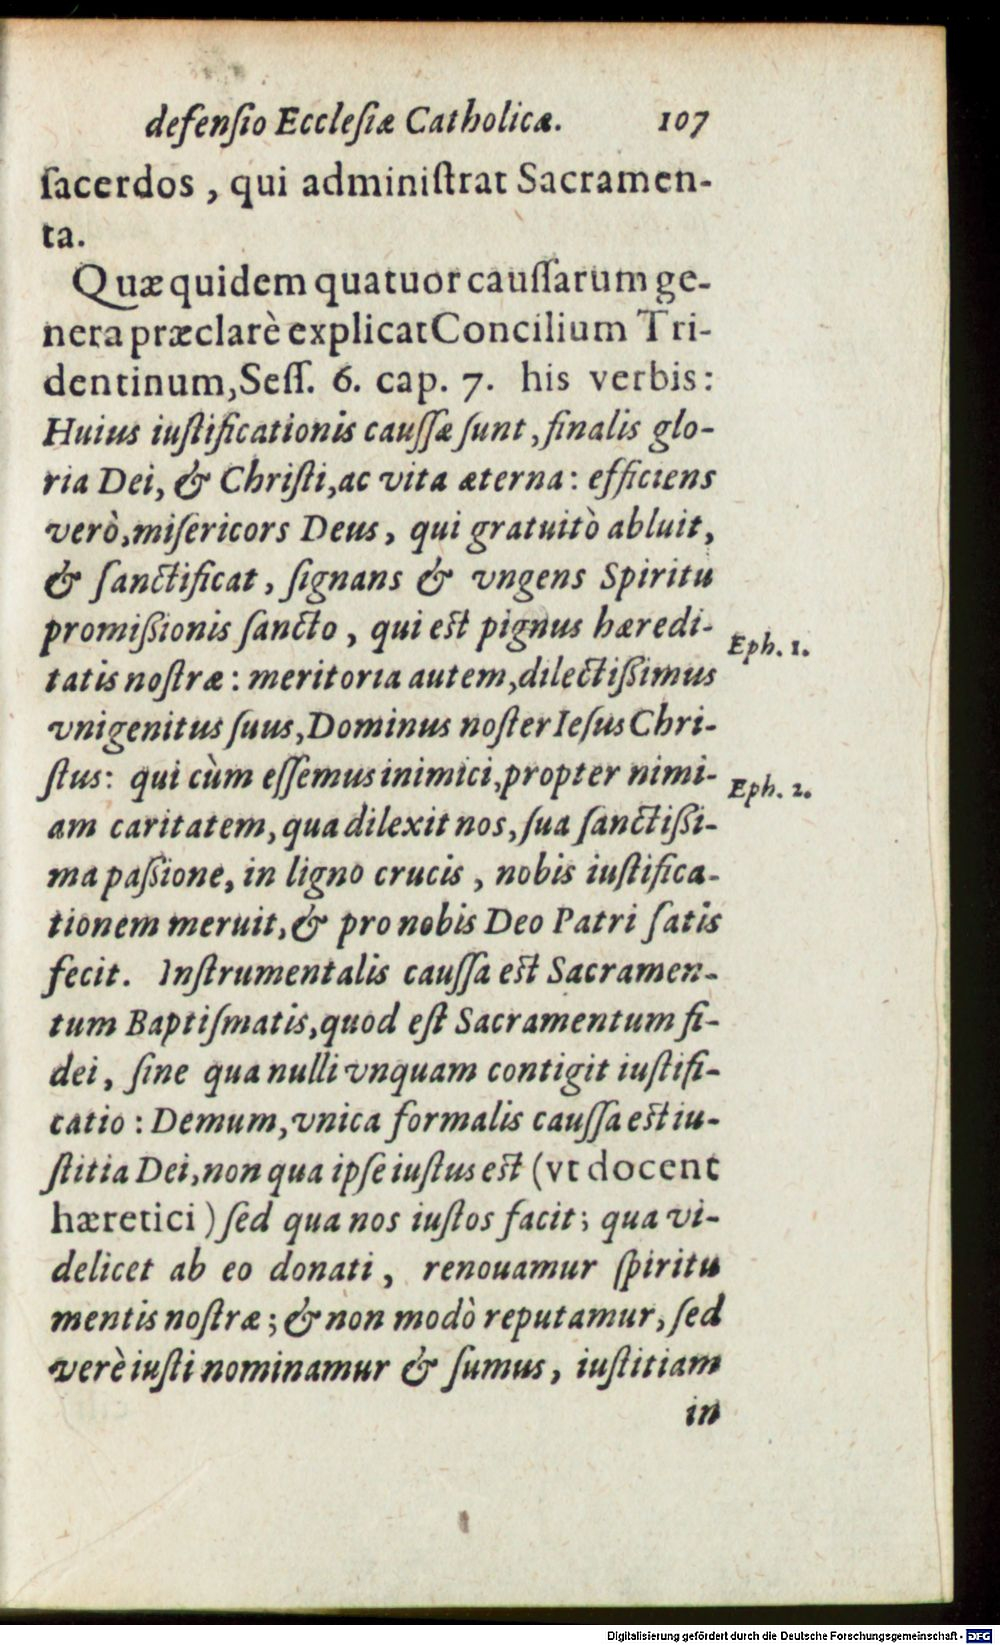 defenſio Eccleſiæ Catholicæ. 107
ſacerdos, qui adminiſtrat Sacramen-
ta.
Quæ quidem quatuor cauſſarum ge-
nera præclarè explicat Concilium Tri-
dentinum, Seſſ. 6. cap. 7. his verbis:
Huius iuſtificationis cauſſæ ſunt, finalis glo-
ria Dei, & Chriſti, ac vita æterna: efficiens
verò, miſericors Deus, qui gratuitò abluit,
& ſanctificat, ſignans & vngens Spiritu
promißionis ſancto, qui eſt pignus hæredi-
Eph. 1.
tatis noſtræ: meritoria autem, dilectißimus
vnigenitus ſuus, Dominus noſter Ieſus Chri-
ſtus: qui cùm eſſemus inimici, propter nimi-
Eph. 2.
am caritatem, qua dilexit nos, ſua ſanctißi-
ma paßione, in ligno crucis, nobis iuſtifica-
tionem meruit, & pro nobis Deo Patri ſatis
fecit. Inſtrumentalis cauſſa eſt Sacramen-
tum Baptiſmatis, quod eſt Sacramentum fi-
dei, ſine qua nulli vnquam contigit iuſtifi-
catio: Demum, vnica formalis cauſſa eſt iu-
ſtitia Dei, non qua ipſe iuſtus eſt (vt docent
hæretici) ſed qua nos iuſtos facit; qua vi-
delicet ab eo donati, renouamur ſpiritu
mentis noſtræ; & non modò reputamur, ſed
verè iuſti nominamur & ſumus, iuſtitiam
in
Digitalisierung gefördert durch die Deutsche Forschungsgemeinschaft - DFG